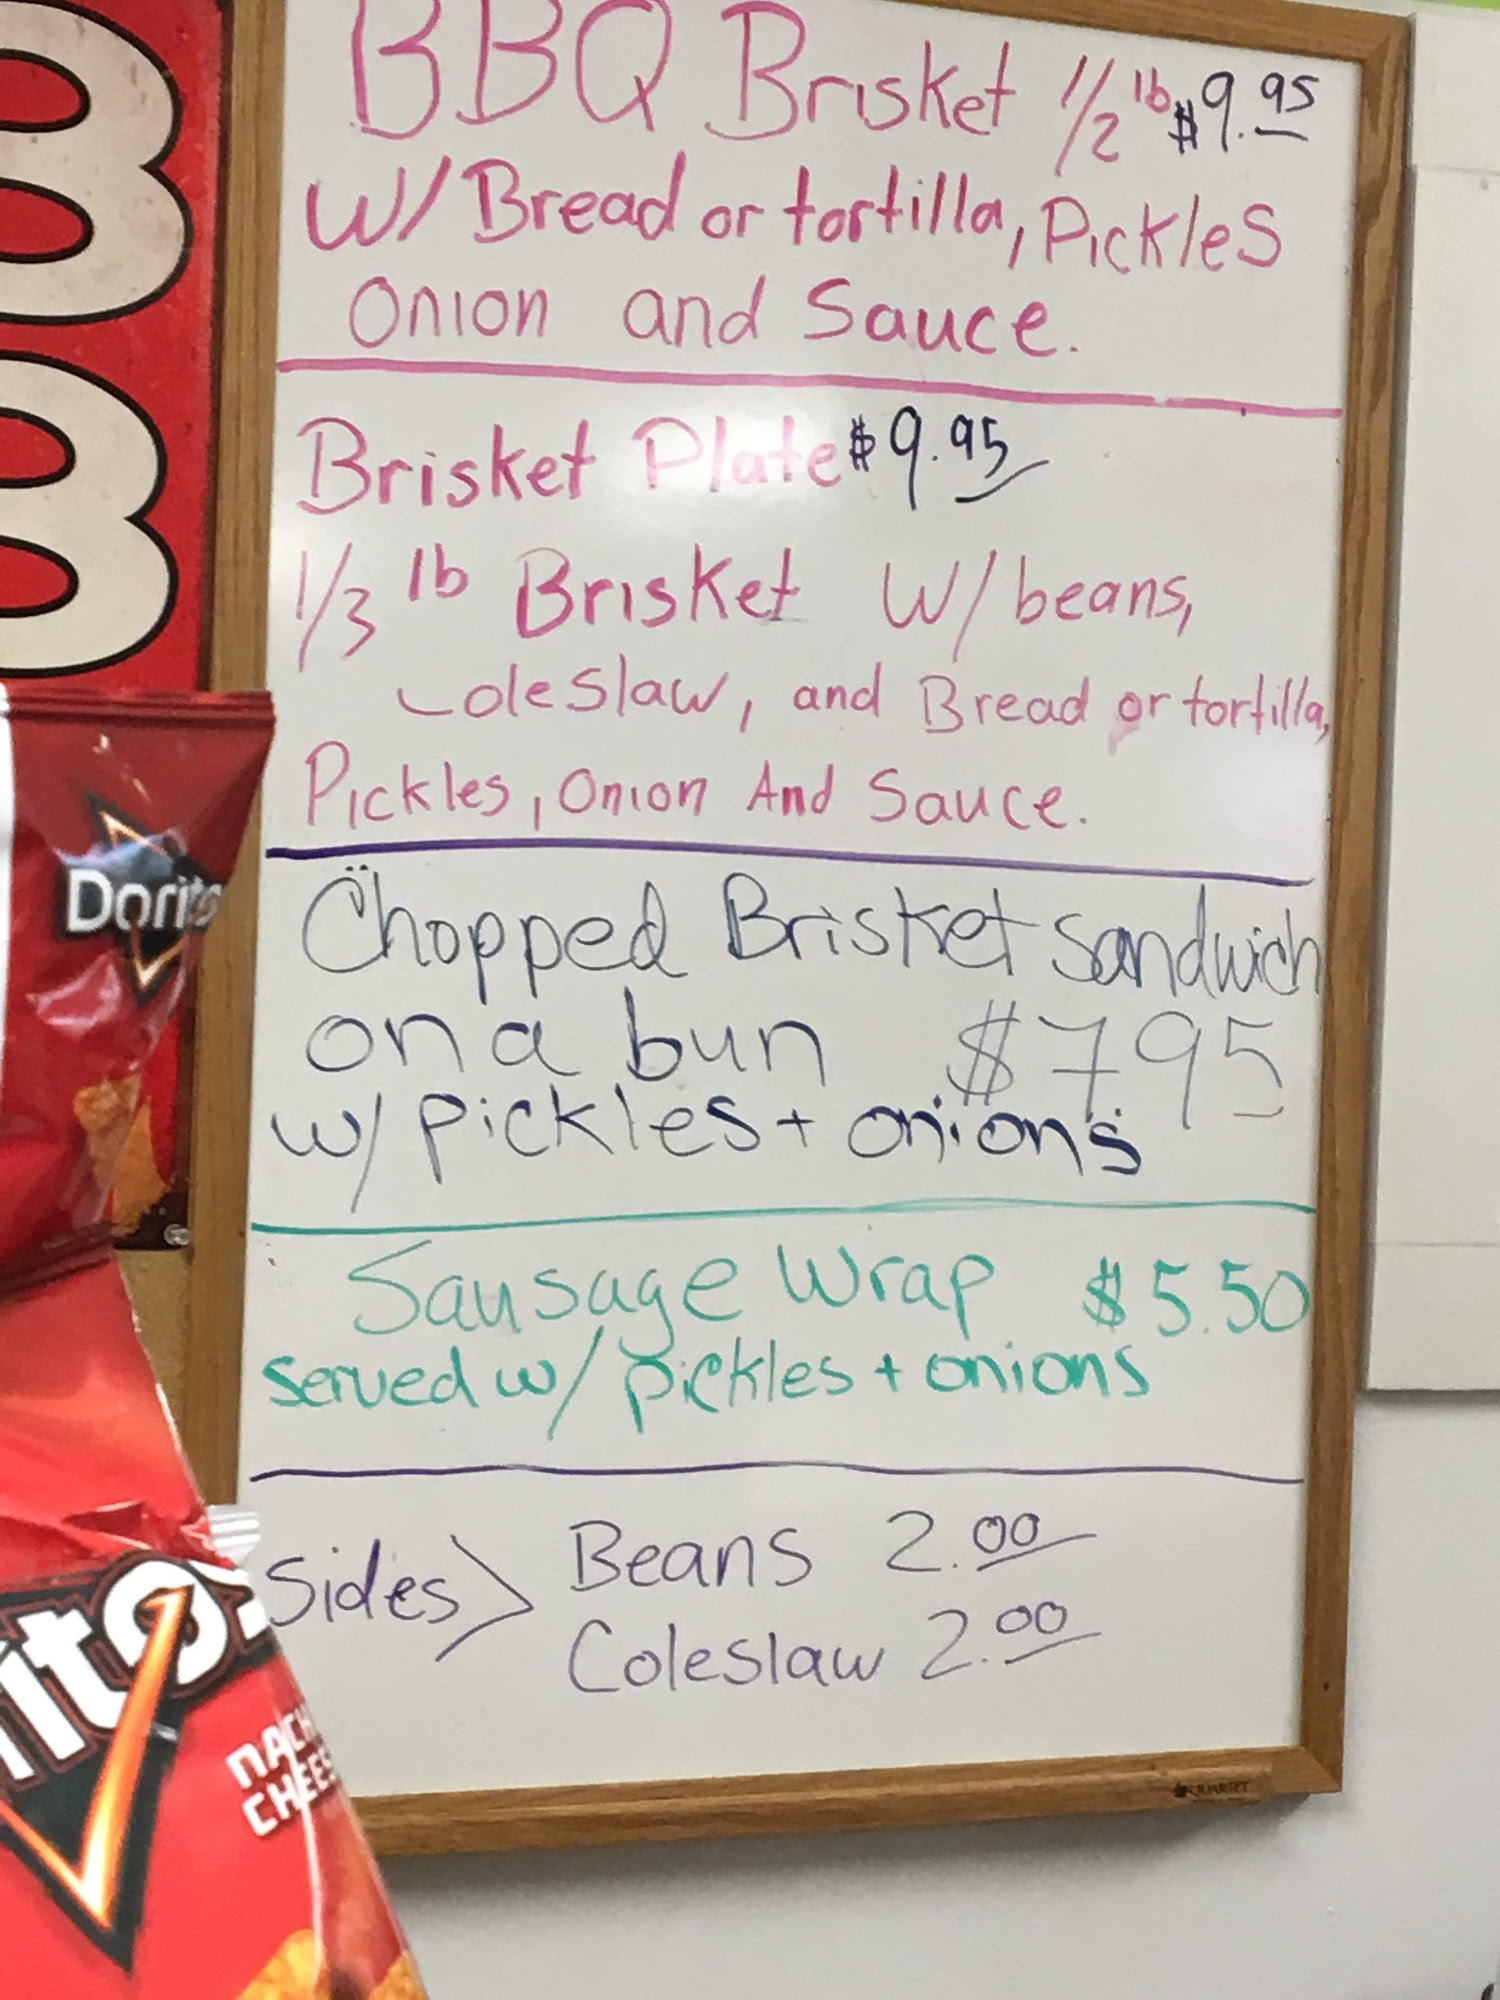 BBQ Brisket 1/2 lb $9.95
W/ Bread or tortilla, Pickles
Onion and Sauce.
Brisket Plate $9.95
1/3 lb Brisket W/ beans,
Coleslaw, and Bread or tortilla,
Pickles, Onion And Sauce.
Chopped Brisket Sandwich
on a bun $7.95
w/ pickles + onions
Sausage Wrap $5.50
served w/ pickles + onions
Sides > Beans 2.00
Coleslaw 2.00
QUARTET
BB
Doritos
itos
NACH
CHEES